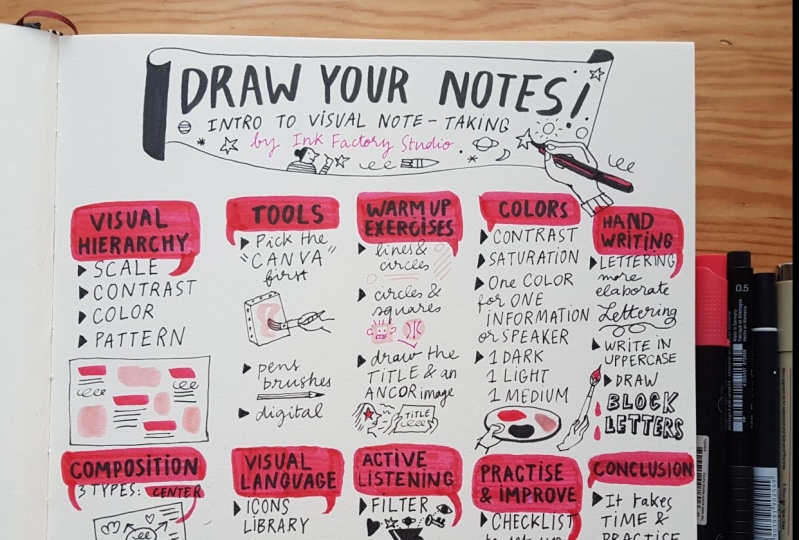 DRAW YOUR NOTES!
INTRO TO VISUAL NOTE-TAKING
by Ink Factory Studio
VISUAL
HIERARCHY
SCALE
CONTRAST
COLOR
PATTERN
TOOLS
Pick the
"CANVA"
first
pens
brushes
digital
WARM UP
EXERCISES
lines &
circles
circles &
squares
draw the
TITLE & an
ANCOR image
TITLE
COLORS
CONTRAST
SATURATION
One COLOR
for ONE
INFORMATION
or SPEAKER
1 DARK
1 LIGHT
1 MEDIUM
HAND
WRITING
LETTERING
more
elaborate
Lettering
WRITE IN
UPPERCASE
DRAW
BLOCK
LETTERS
COMPOSITION
3 TYPES: CENTER
VISUAL
LANGUAGE
ICONS
LIBRARY
ACTIVE
LISTENING
FILTER
PRACTISE
& IMPROVE
CHECKLIST
CONCLUSION
It takes
TIME &
PRACTISE
0.5